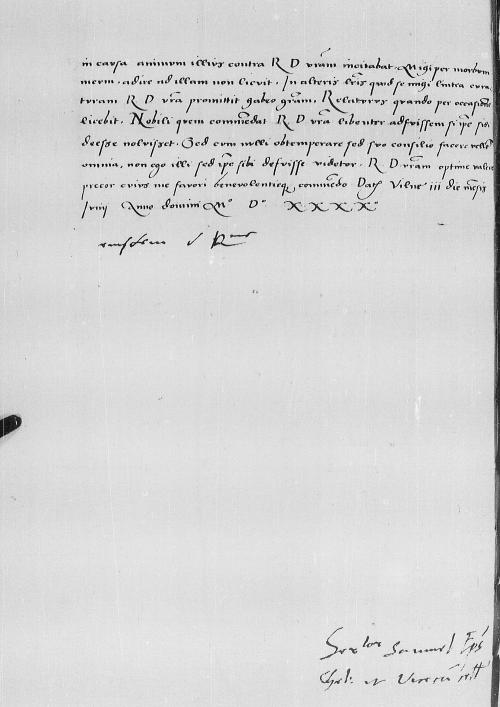 in causa animum illius contra R D vr̃am incitabat. Mihi per morbum
meum adire ad illam non licuit. In alteris lr̃is quid se mihi lintea cura
turam R D vr̃a promittit habeo grãm. Relaturus quando per occasionẽ
licebit. Nobilj quem commẽdat R D vr̃a libenter adfuissem si ip̃e sibi
deesse noluisset. Sed cum nulli obtemperare sed suo consilio facere vellet
omnia, non ego illi sed ip̃e sibi defuisse videtur. R D vr̃am optime valere
precor cuius me fauori beneuolentieq; commẽdo Dat̃ Vilne iii die mẽsis
Junij Anno domini Mº Dº XXXXº
eiusdem v R
Samuel Ep̃s
Chel: et